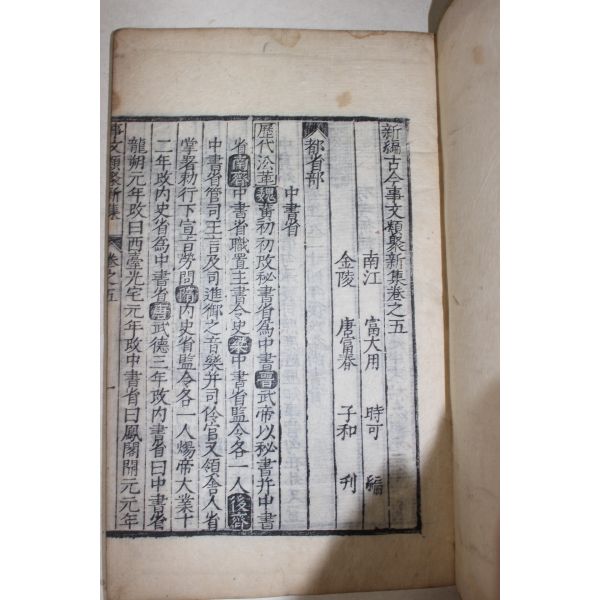 新編古今事文類聚新集卷之五
南江 富大用 時可 編
金陵 唐富春 子和 刊
都省部
中書省
歷代沿革魏黃初初改秘書省為中書晉武帝以秘書并中書
省南齊中書省職置主書令史梁中書省監令各一人後齊
中書省管司王言及司進御之音樂并司伶官又領舍人省
掌署勑行下宣旨勞問隋內史省監令各一人煬帝大業十
二年改內史省為中書省唐武德三年改內書省曰中書省
龍朔元年改曰西臺光宅元年改中書省曰鳳閣開元元年
事文類聚新集 卷之五 一